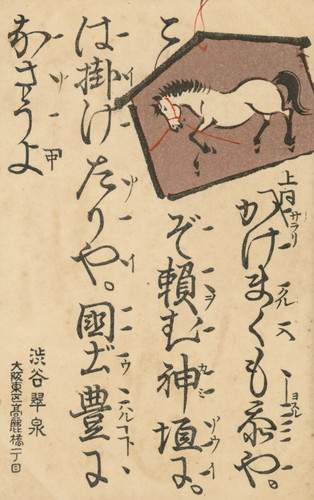 上同 サラリ
かけまくも忝や。
こ ぞ頼む神垣に。
は掛けたりや。國土豊に
なさうよ
甲
渋谷翠泉
大阪東区高麗橋一丁目